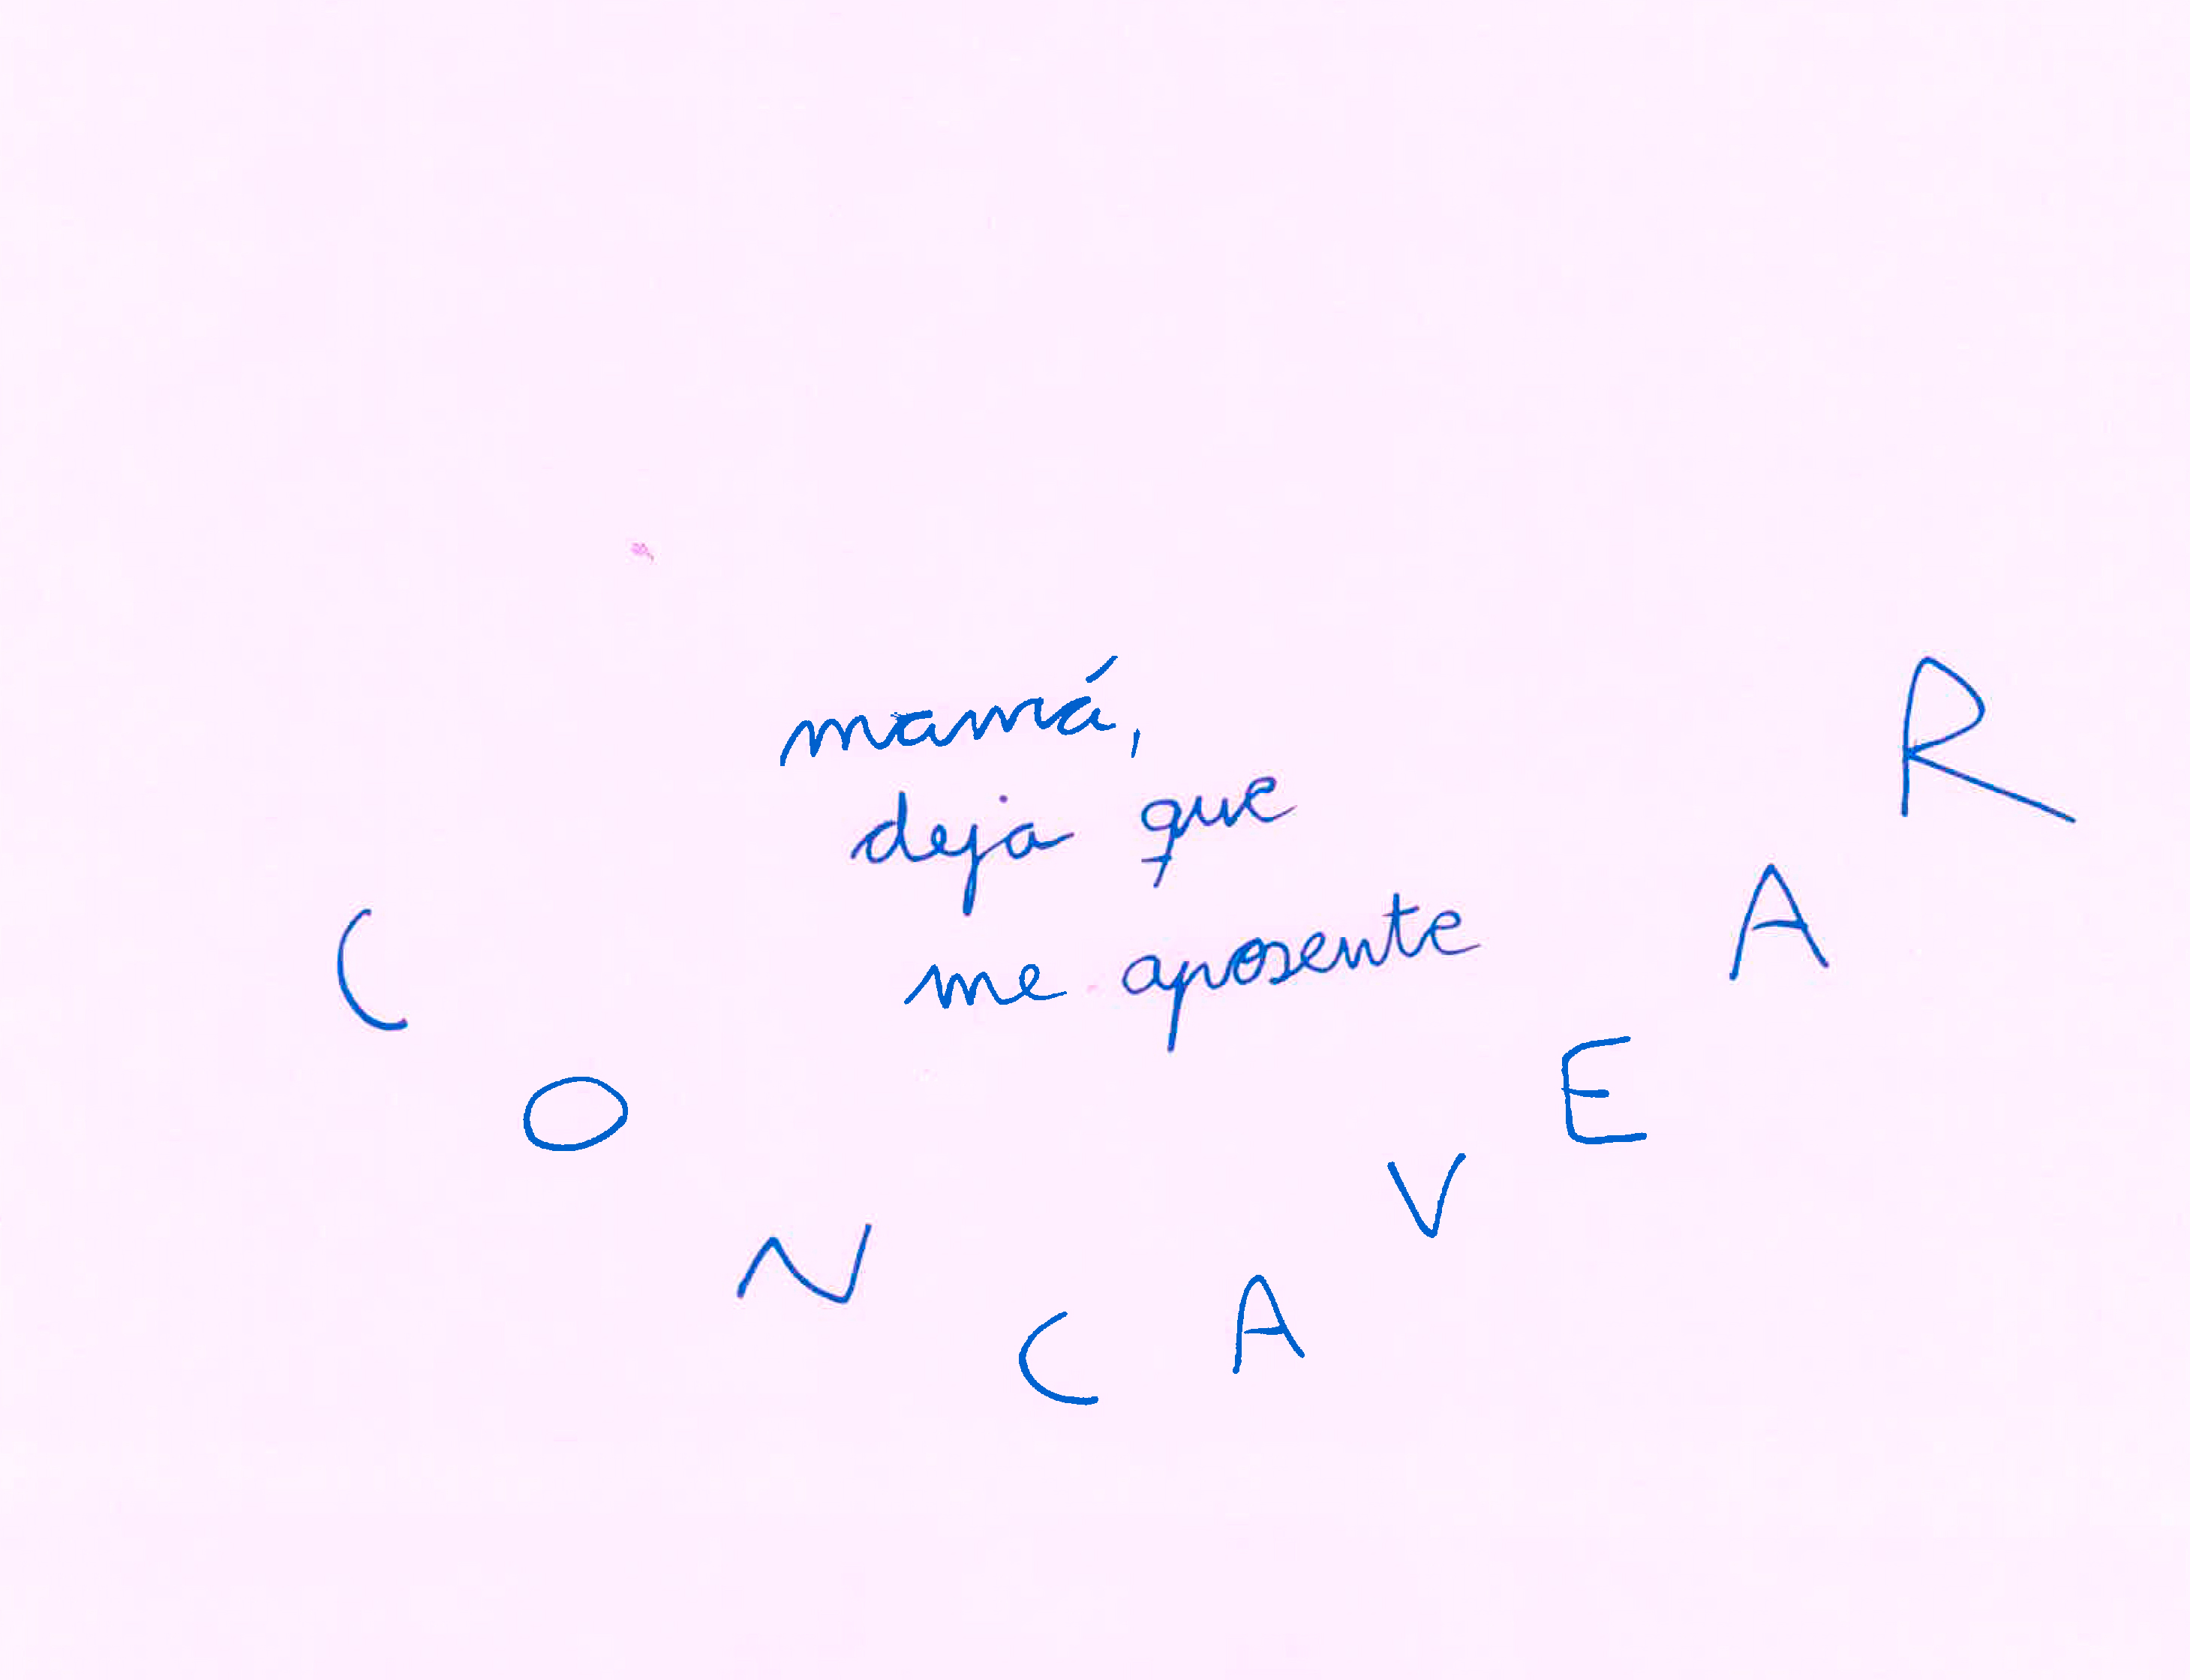 mamá,
deja que
me aposente
CONCAVEAR